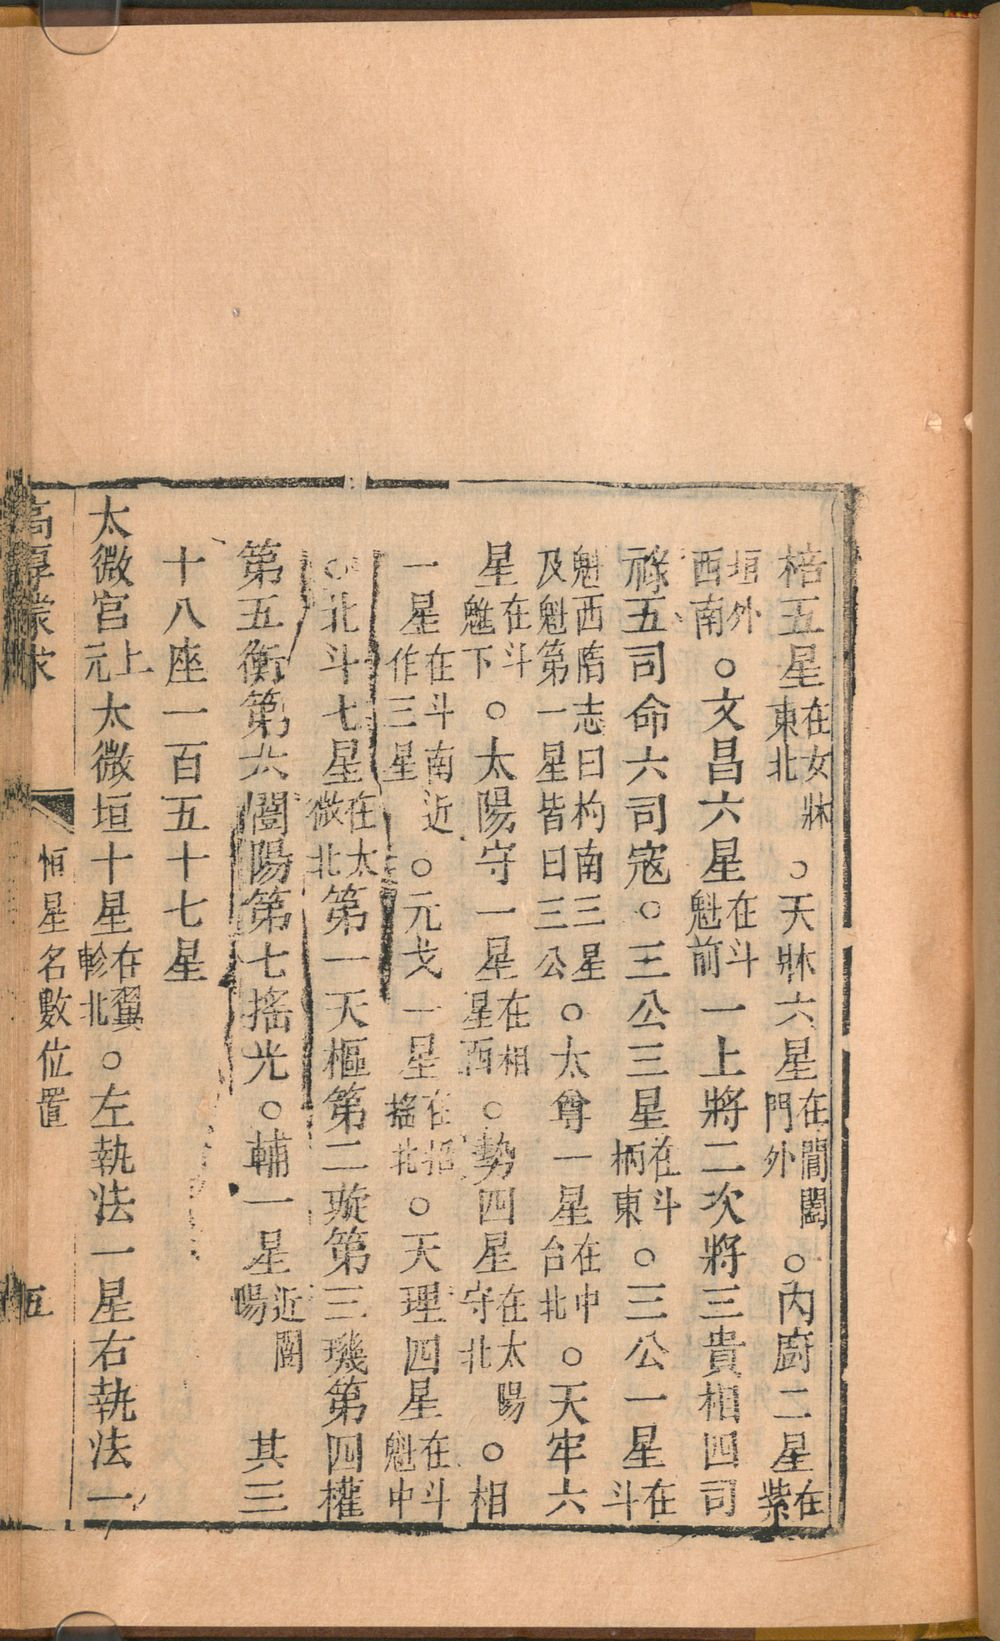 棓五星在女牀東北○天牀六星在閶闔門外○內廚二星在紫
垣外西南○文昌六星在斗魁前一上將二次將三貴相四司
祿五司命六司寇○三公三星在斗柄東○三公一星在斗
魁西隋志曰杓南三星及魁第一星皆曰三公○太尊一星在中台北○天牢六
星在斗魁下○太陽守一星在相星西○勢四星在太陽守北○相
一星在斗南近作三星○元戈一星在招搖北○天理四星在斗魁中
○北斗七星在太微北第一天樞第二璇第三璣第四權
第五衡第六闓陽第七搖光○輔一星近闓陽其三
十八座一百五十七星
太微宮上元太微垣十星在翼軫北○左執法一星右執法一
高厚蒙求 恒星名數位置 五